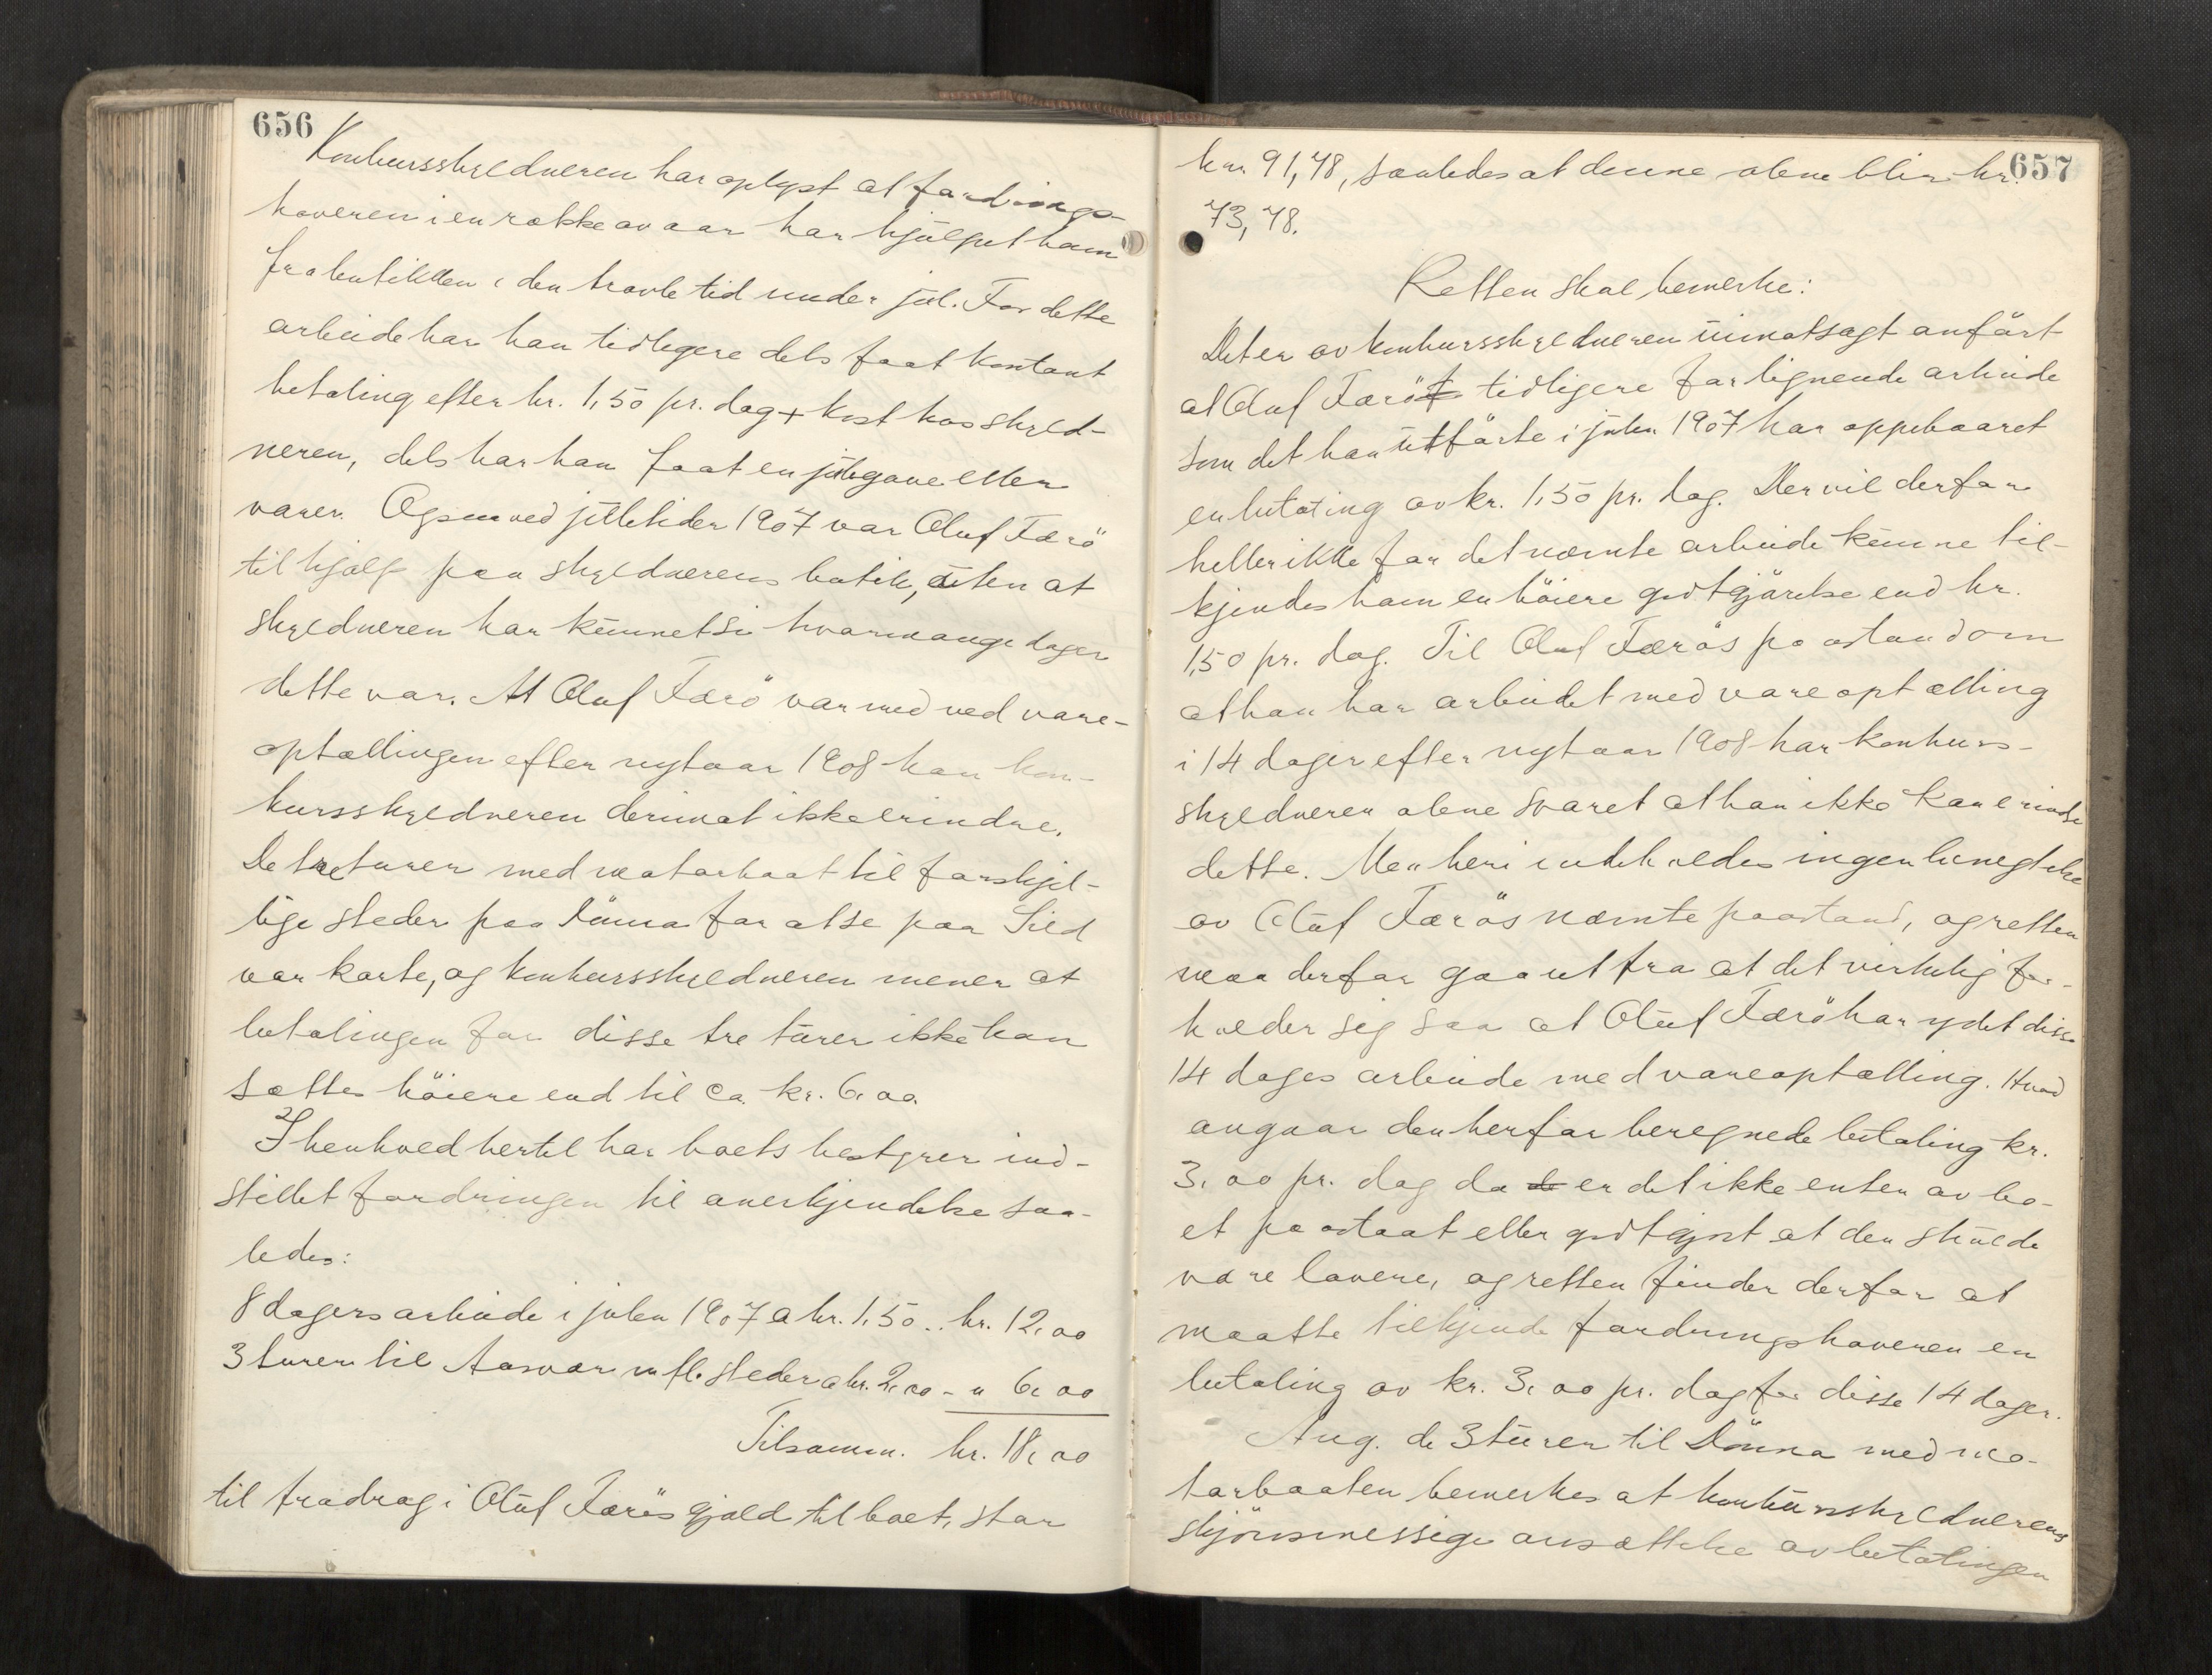 656
Konkursskyldneren har oplyst at fordrings-
haveren i en række av aar har hjulpet ham
fra butikken i den travle tid under jul. For dette
arbeide har han tidligere dels faat kontant
betaling efter kr. 1,50 pr. dag + kost hos skyld-
neren, dels har han faat en julegave eller
varer. Ogsaa ved juletider 1907 var Oluf Færö
til hjælp paa skyldnerens butik, uten at
skyldneren har kunnet si hvormange dager
dette var. At Oluf Færö var med ved vare-
optællingen efter nytaar 1908 kan kon-
kursskyldneren derimot ikke erindre.
De tre turer med motorbaat til forskjel-
lige steder paa Dönna for at se paa Sild
var korte, og konkursskyldneren mener at
betalingen for disse tre turer ikke kan
sættes höiere end til ca. kr. 6,00.
I henhold hertil har boets bestyrer ind-
stillet fordringen til anerkjendelse saa-
ledes:
8 dagers arbeide i julen 1907 a kr. 1,50 .. kr. 12,00
3 turer til Aasvær m fl. steder a kr. 2,00 - " 6,00
Tilsamm. kr. 18,00
til fradrag i Oluf Færös gjæld til boet, stor
657
kr. 91,78, saaledes at denne alene blir kr.
73,78.
Retten skal bemerke:
Det er av konkursskyldneren uimotsagt anfört
at Oluf Færö tidligere for lignende arbeide
som det han utförte i julen 1907 har oppebaaret
en betaling av kr. 1,50 pr. dag. Der vil derfor
heller ikke for det nævnte arbeide kunne til-
kjendes ham en höiere godtgjörelse end kr.
1,50 pr. dag. Til Oluf Færös paastand om
at han har arbeidet med vareoptælling
i 14 dager efter nytaar 1908 har konkurs-
skyldneren alene svaret at han ikke kan erindre
dette. Men heri indeholdes ingen benegtelse
av Oluf Færös nævnte paastand, og retten
maa derfor gaa ut fra at det virkelig for-
holder sig saa at Oluf Færö har ydet disse
14 dages arbeide med vareoptælling. Hvad
angaar den herfor beregnede betaling kr.
3,00 pr. dag da er det ikke enten av bo-
et paastaat eller godtgjort at den skulde
være lavere, og retten finder derfor at
maatte tilkjende fordringshaveren en
betaling av kr. 3,00 pr. dag for disse 14 dager.
Ang. de 3 turer til Dönna med mo-
torbaaten bemerkes at konkursskyldnerens
skjönsmessige ansættelse av betalingen